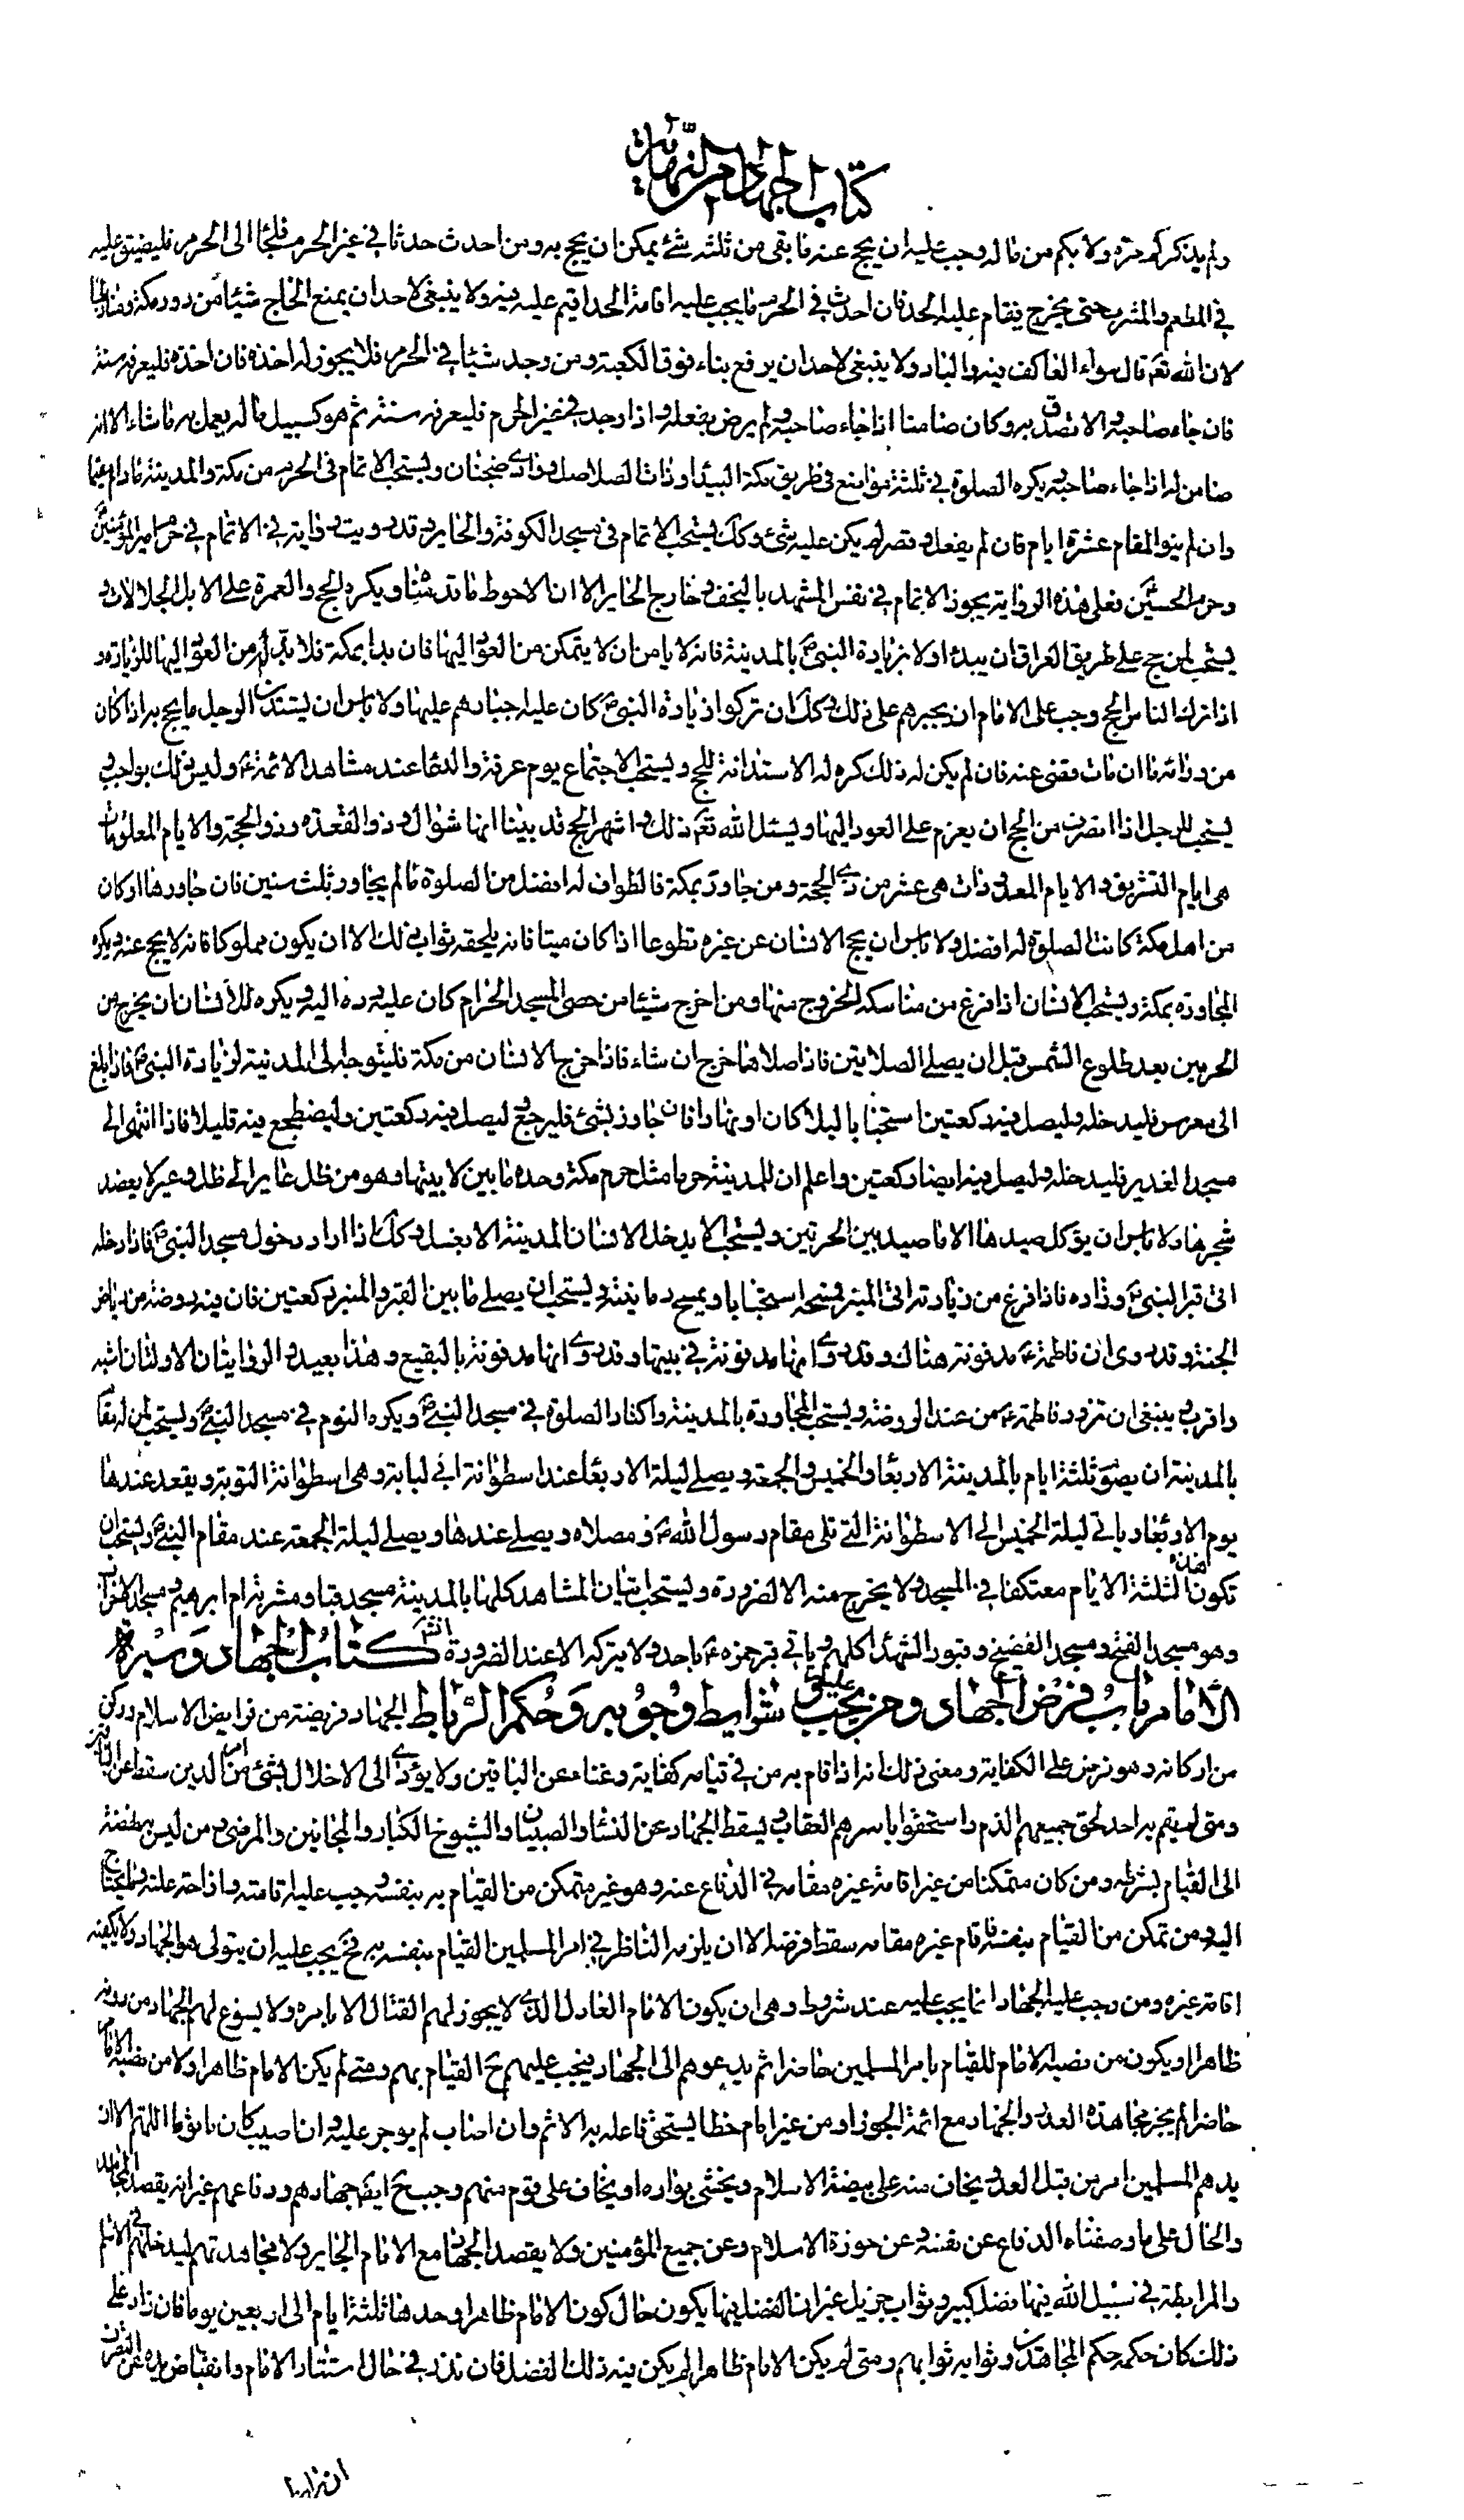 كتاب الجهاد من النهاية
ولم يذكركم حجة ولا بكم من ماله وجب عليه ان يحج عنه مما بقى من ثلثه شئ يمكن ان يحج به ومن احدث حدثا فى غير الحرم فلجأ الى الحرم فليضيق عليه
فى المطعم والمشرب حتى يخرج فيقام عليه الحد فان احدث فى الحرم ما يجب عليه اقامة الحد اقيم عليه فيه ولا ينبغى لاحد ان يمنع الحاج شيئا من دور مكة ومنازلها
لان الله تعم قال سواء العاكف فيه والباد ولا ينبغى لاحد ان يرفع بناء فوق الكعبة ومن وجد شيئا فى الحرم فلا يجوز له اخذه فان اخذه فليعرفه سنة
فان جاء صاحبه والا تصدق به وكان ضامنا اذا جاء صاحبه ولم يرض بفعله واذا وجد فى غير الحرم فليعرفه سنة ثم هو كسبيل ماله يعمل به ما شاء الا انه
ضامن له اذا جاء صاحبه ويكره الصلوة فى ثلثة مواضع فى طريق مكة البيداء وذات الصلاصل ووادى ضجنان ويستحب الاتمام فى الحرمين مكة والمدينة ما دام مقيما
وان لم ينو المقام عشرة ايام فان لم يفعل وقصر لم يكن عليه شئ وكك يستحب الاتمام فى مسجد الكوفة والحاير وقد رويت رواية فى الاتمام فى حرم امير المؤمنين
وحرم الحسين فعلى هذه الرواية يجوز الاتمام فى نفس المشهد بالنجف وخارج الحاير الا ان الاحوط ما قدمناه ويكره الحج والعمرة على الابل الجلالات و
يستحب لمن حج على طريق العراق ان يبدء اولا بزيارة النبى ص بالمدينة فانه لا يامن ان لا يتمكن من العود اليها فان بدا بمكة فلا بد له من العود اليها للزيارة و
اذا ترك الناس الحج وجب على الامام ان يجبرهم على ذلك وكك ان تركوا زيارة النبى ص كان عليه اجبارهم عليها ولا باس ان يستدين الرجل ما يحج به اذا كان
من ورائه ما ان مات قضى عنه فان لم يكن له ذلك كره له الاستدانة للحج ويستحب الاجتماع يوم عرفة والدعا عند مشاهد الائمة ع وليس ذلك بواجب و
يستحب للرجل اذا انصرف من الحج ان يعزم على العود اليها ويسئل الله تعم ذلك واشهر الحج قد بينا انها شوال وذو القعدة وذو الحجة والايام المعلومات
هى ايام التشريق والايام المعدودات هى عشر من ذى الحجة ومن جاور بمكة فالطواف له افضل من الصلوة ما لم يجاور ثلث سنين فان جاورها او كان
من اهل مكة كانت الصلوة له افضل ولا باس ان يحج الانسان عن غيره تطوعا اذا كان ميتا فانه يلحقه ثواب ذلك الا ان يكون مملوكا فانه لا يحج عنه ويكره
المجاورة بمكة ويستحب للانسان اذا فرغ من مناسكه الخروج منها ومن اخرج شيئا من حصى المسجد الحرام كان عليه رده اليه ويكره للانسان ان يخرج من
الحرمين بعد طلوع الشمس قبل ان يصلى الصلاتين فاذا صلاهما خرج ان شاء فاذا خرج الانسان من مكة فليتوجه الى المدينة لزيارة النبى ص فاذا بلغ
الى معرس فليدخله وليصل فيه ركعتين استحبابا ليلا كان او نهارا فان جاوز بشئ فليرجع وليصل فيه ركعتين وليضطجع فيه قليلا فاذا انتهى الى
مسجد الغدير فليدخله وليصل فيه ايضا ركعتين واعلم ان للمدينة حرما مثل حرم مكة وحده ما بين لابيتها وهو من ظل عاير الى ظل وعير لا يعضد
شجرها ولا باس ان يؤكل صيدها الا ما صيد بين الحرتين ويستحب الا يدخل الانسان المدينة الا بغسل وكك اذا اراد دخول مسجد النبى ص فاذا دخله
اتى قبر النبى ص وزاره فاذا فرغ من زيارته اتى المنبر فمسحه استحبابا ويمسح رمانتيه ويستحب ان يصلى ما بين القبر والمنبر ركعتين فان فيه روضة من رياض
الجنة وقد روى ان فاطمة ع مدفونة هناك وقد روى انها مدفونة فى بيتها وقد روى انها مدفونة بالبقيع وهذا بعيد والروايتان الاولتان اشبه
واقرب وينبغى ان تزور فاطمة ع من عند الروضة ويستحب المجاورة بالمدينة واكثار الصلوة فى مسجد النبى ص ويكره النوم فى مسجد النبى ص ويستحب لمن له مقام
بالمدينة ان يصوم ثلثة ايام بالمدينة الاربعا والخميس والجمعة ويصلى ليلة الاربعا عند اسطوانة ابى لبابة وهى اسطوانة التوبة ويقعد عندها
يوم الاربعا وياتى ليلة الخميس الى الاسطوانة التى تلى مقام رسول الله ص ومصلاه ويصلى عندها ويصلى ليلة الجمعة عند مقام النبى ص ويستحب ان
تكون هذه الثلثة الايام معتكفا فى المسجد ولا يخرج منه الا لضرورة ويستحب اتيان المشاهد كلها بالمدينة مسجد قبا ومشربة ام ابرهيم ومسجد الاحزاب
وهو مسجد الفتح ومسجد الفضيخ وقبور الشهدا كلهم وياتى قبر حمزة ع باحد ولا يتركه الا عند الضرورة انشه كتاب الجهاد وسيرة
الامام باب فرض الجهاد ومن يجب عليه وشرايط وجوبه وحكم الرباط الجهاد فريضة من فرايض الاسلام وركن
من اركانه وهو فرض على الكفاية ومعنى ذلك انه اذا قام به من فى قيامه كفاية وغناء عن الباقين ولا يؤدى الى الاخلال بشئ من امر الدين سقط عن الباقين
ومتى لم يقم به احد لحق جميعهم الذم واستحقوا باسرهم العقاب ويسقط الجهاد عن النسا والصبيان والشيوخ الكبار والمجانين والمرضى ومن ليس به نهضة
الى القيام بشرطه ومن كان متمكنا من غير اقامة غيره مقامه فى الدفاع عنه وهو غير متمكن من القيام به بنفسه وجب عليه اقامته وازاحة علته فيما يحتاج
اليه ومن تمكن من القيام بنفسه فاقام غيره مقامه سقط فرضه الا ان يلزمه الناظر فى امر المسلمين القيام بنفسه به فح يجب عليه ان يتولى هو الجهاد ولا يكفيه
اقامة غيره ومن وجب عليه الجهاد انما يجب عليه عند شروط وهى ان يكون الامام العادل الذى لا يجوز لهم القتال الا بامره ولا يسوغ لهم الجهاد من دونه
ظاهرا او يكون من نصبه الامام للقيام بامر المسلمين حاضرا ثم يدعوهم الى الجهاد فيجب عليهم ح القيام بهم ومتى لم يكن الامام ظاهرا ولا من نصبه الامام
حاضرا لم يجز مجاهدة العدو والجهاد مع ائمة الجور او من غير امام خطا يستحق فاعله به الاثم وان اصاب لم يوجر عليه وان اصيب كان ماثوما اللهم الا ان
يدهم المسلمين امر من قبل العدو يخاف منه على بيضة الاسلام ويخشى بواره او يخاف على قوم منهم وجب ح ايضا جهادهم ودفاعهم غير انه يقصد المجاهد
والحال على ما وصفناه الدفاع عن نفسه وعن حوزة الاسلام وعن جميع المؤمنين ولا يقصد الجهاد مع الامام الجاير ولا مجاهدتهم ليدخلهم فى الاسلام
والمرابطة فى سبيل الله فيها فضل كبير وثواب جزيل غير ان الفضل فيها يكون حال كون الامام ظاهرا وحدها ثلثة ايام الى اربعين يوما فان زاد على
ذلك كان حكمه حكم المجاهدين وثوابه ثوابهم ومتى لم يكن الامام ظاهرا لم يكن فيه ذلك الفضل فان نذر فى حال استتار الامام وانقباض يده عن التصرف
ان يرابط